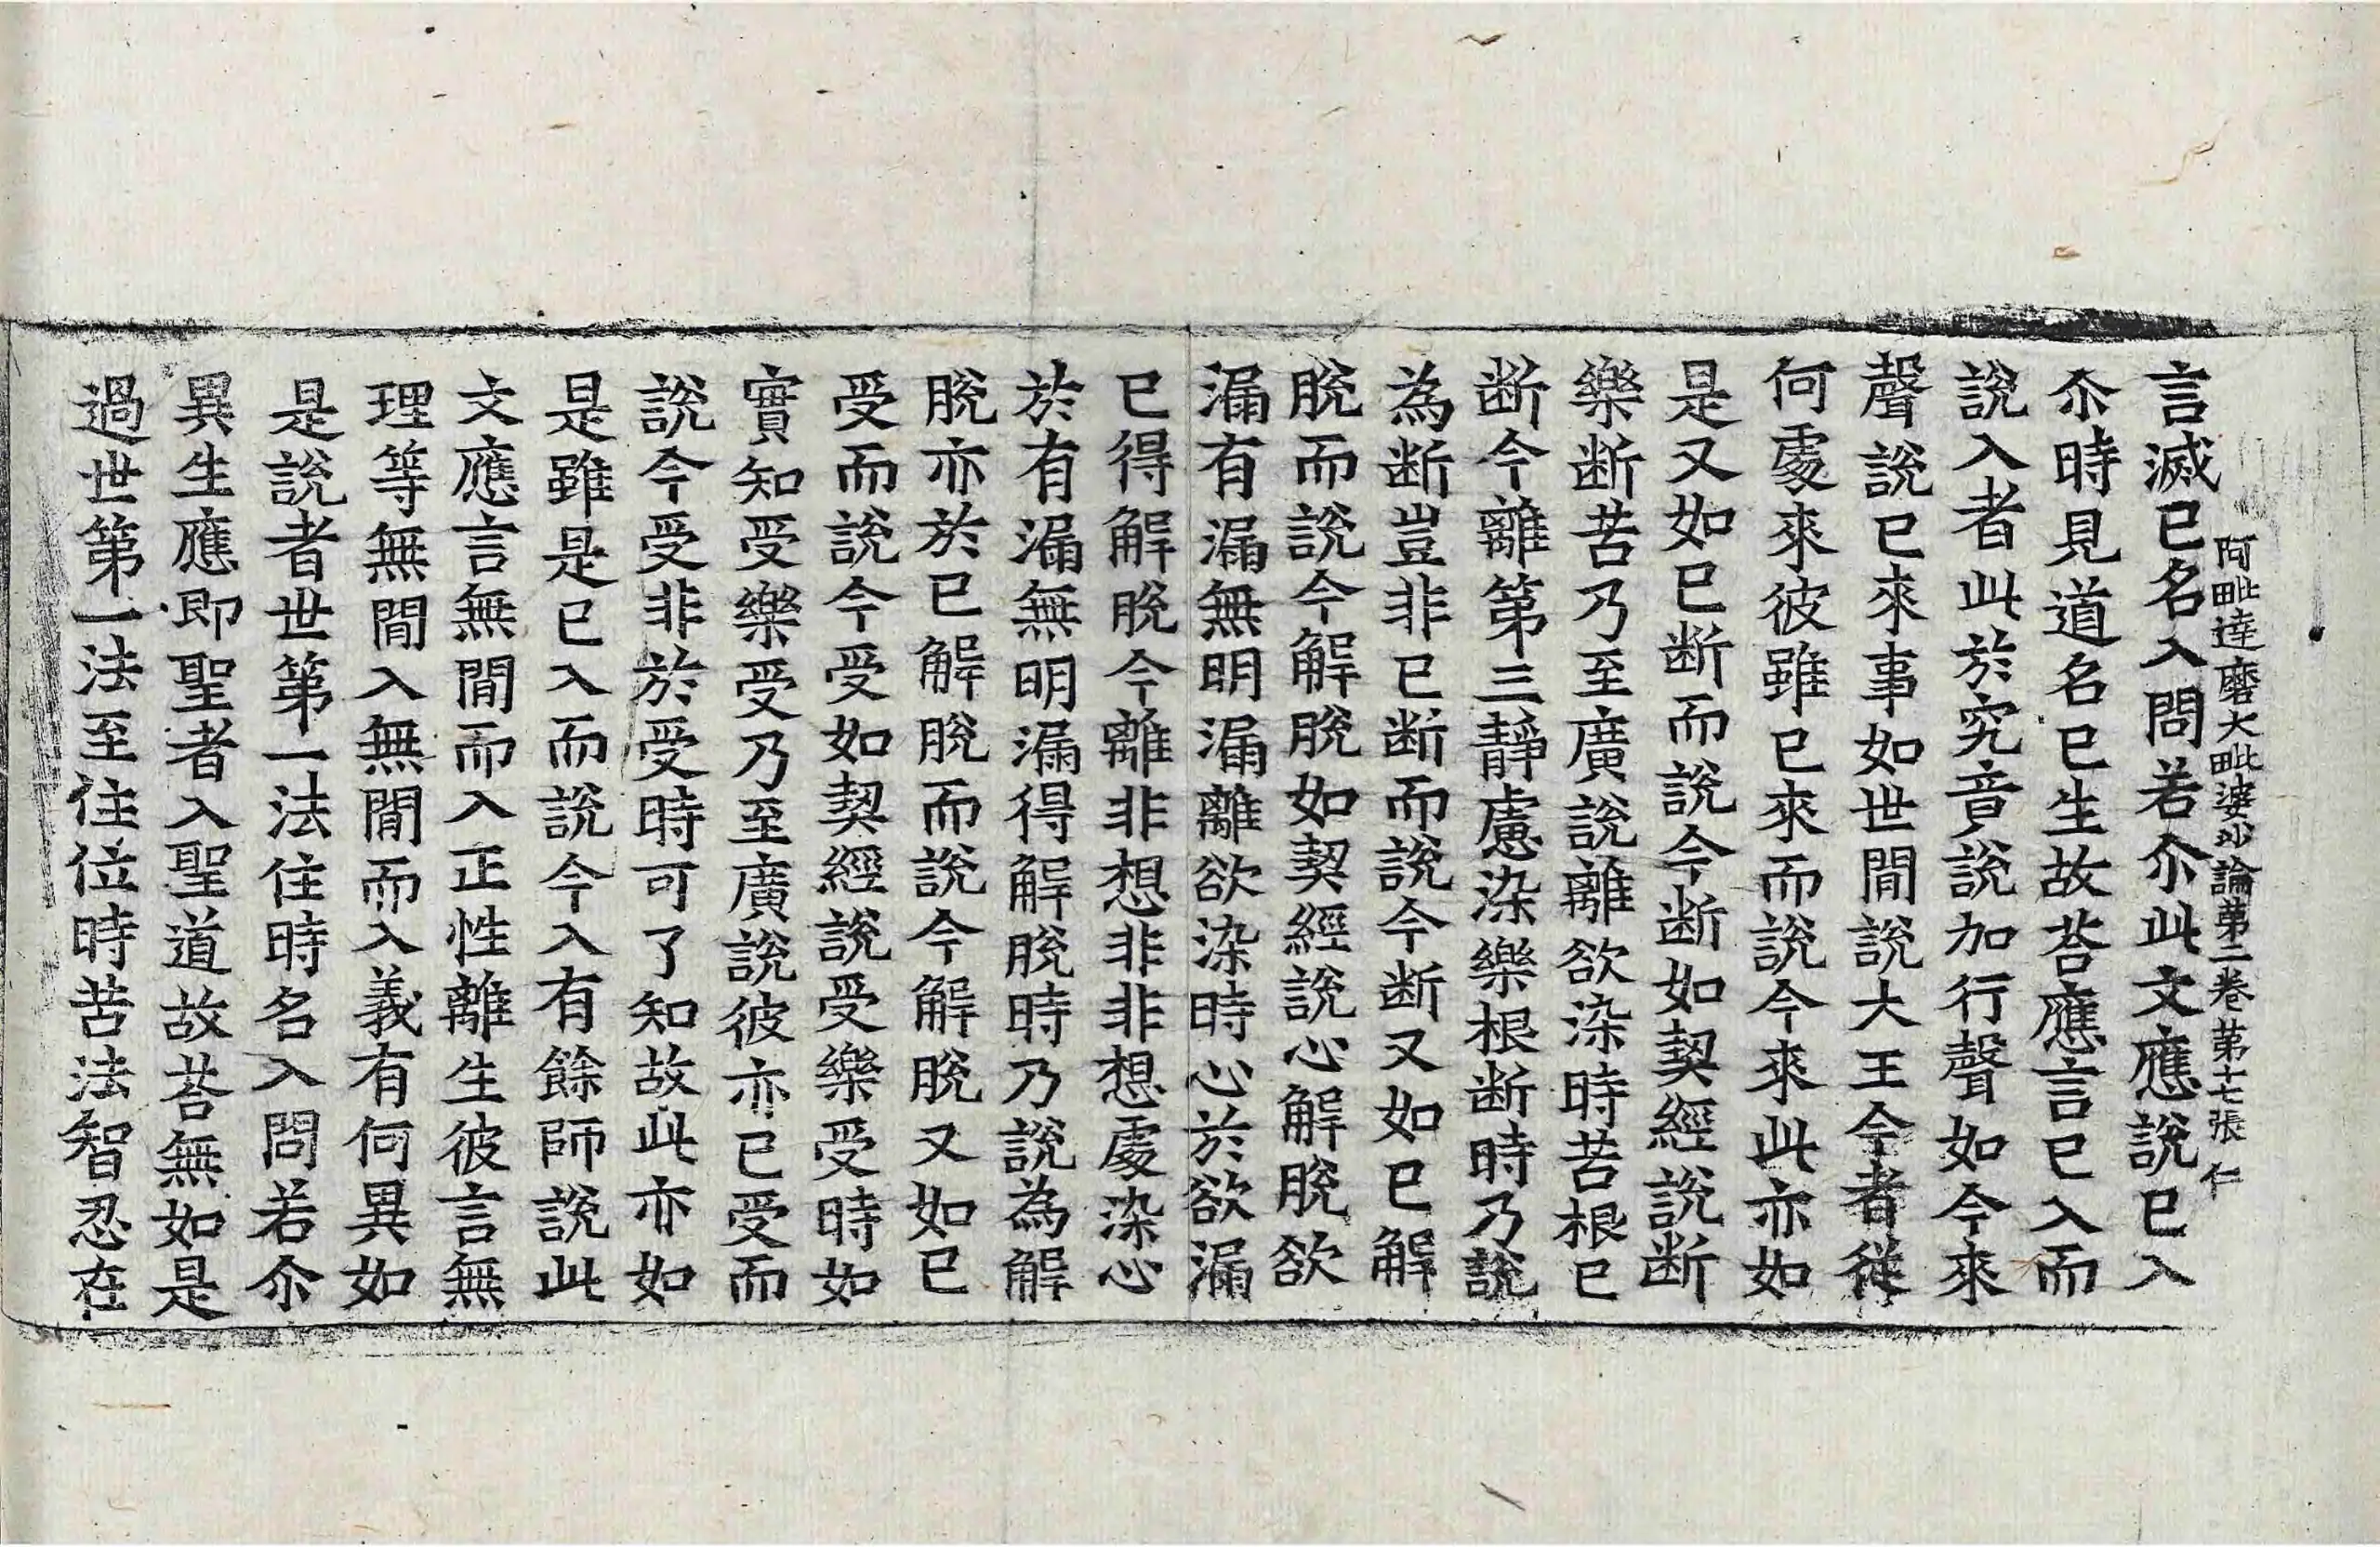 阿毗達磨大毗婆沙論第三卷第十七張 仁
言滅已名入問若尒此文應說已入
尒時見道名已生故荅應言已入而
說入者此於究竟說加行聲如今來
聲說已來事如世間說大王今者從
何處來彼雖已來而說今來此亦如
是又如已断而說今断如契經說断
樂断苦乃至廣說離欲染時苦根已
断今離第三靜慮染樂根断時乃說
為断豈非已断而說今断又如已解
脫而說今解脫如契經說心解脫欲
漏有漏無明漏離欲染時心於欲漏
已得解脫今離非想非非想處染心
於有漏無明漏得解脫時乃說為解
脫亦於已解脫而說今解脫又如已
受而說今受如契經說受樂受時如
實知受樂受乃至廣說彼亦已受而
說今受非於受時可了知故此亦如
是雖是已入而說今入有餘師說此
文應言無間而入正性離生彼言無
理等無間入無間而入義有何異如
是說者世第一法住時名入問若尒
異生應即聖者入聖道故荅無如是
過世第一法至住位時苦法智忍在